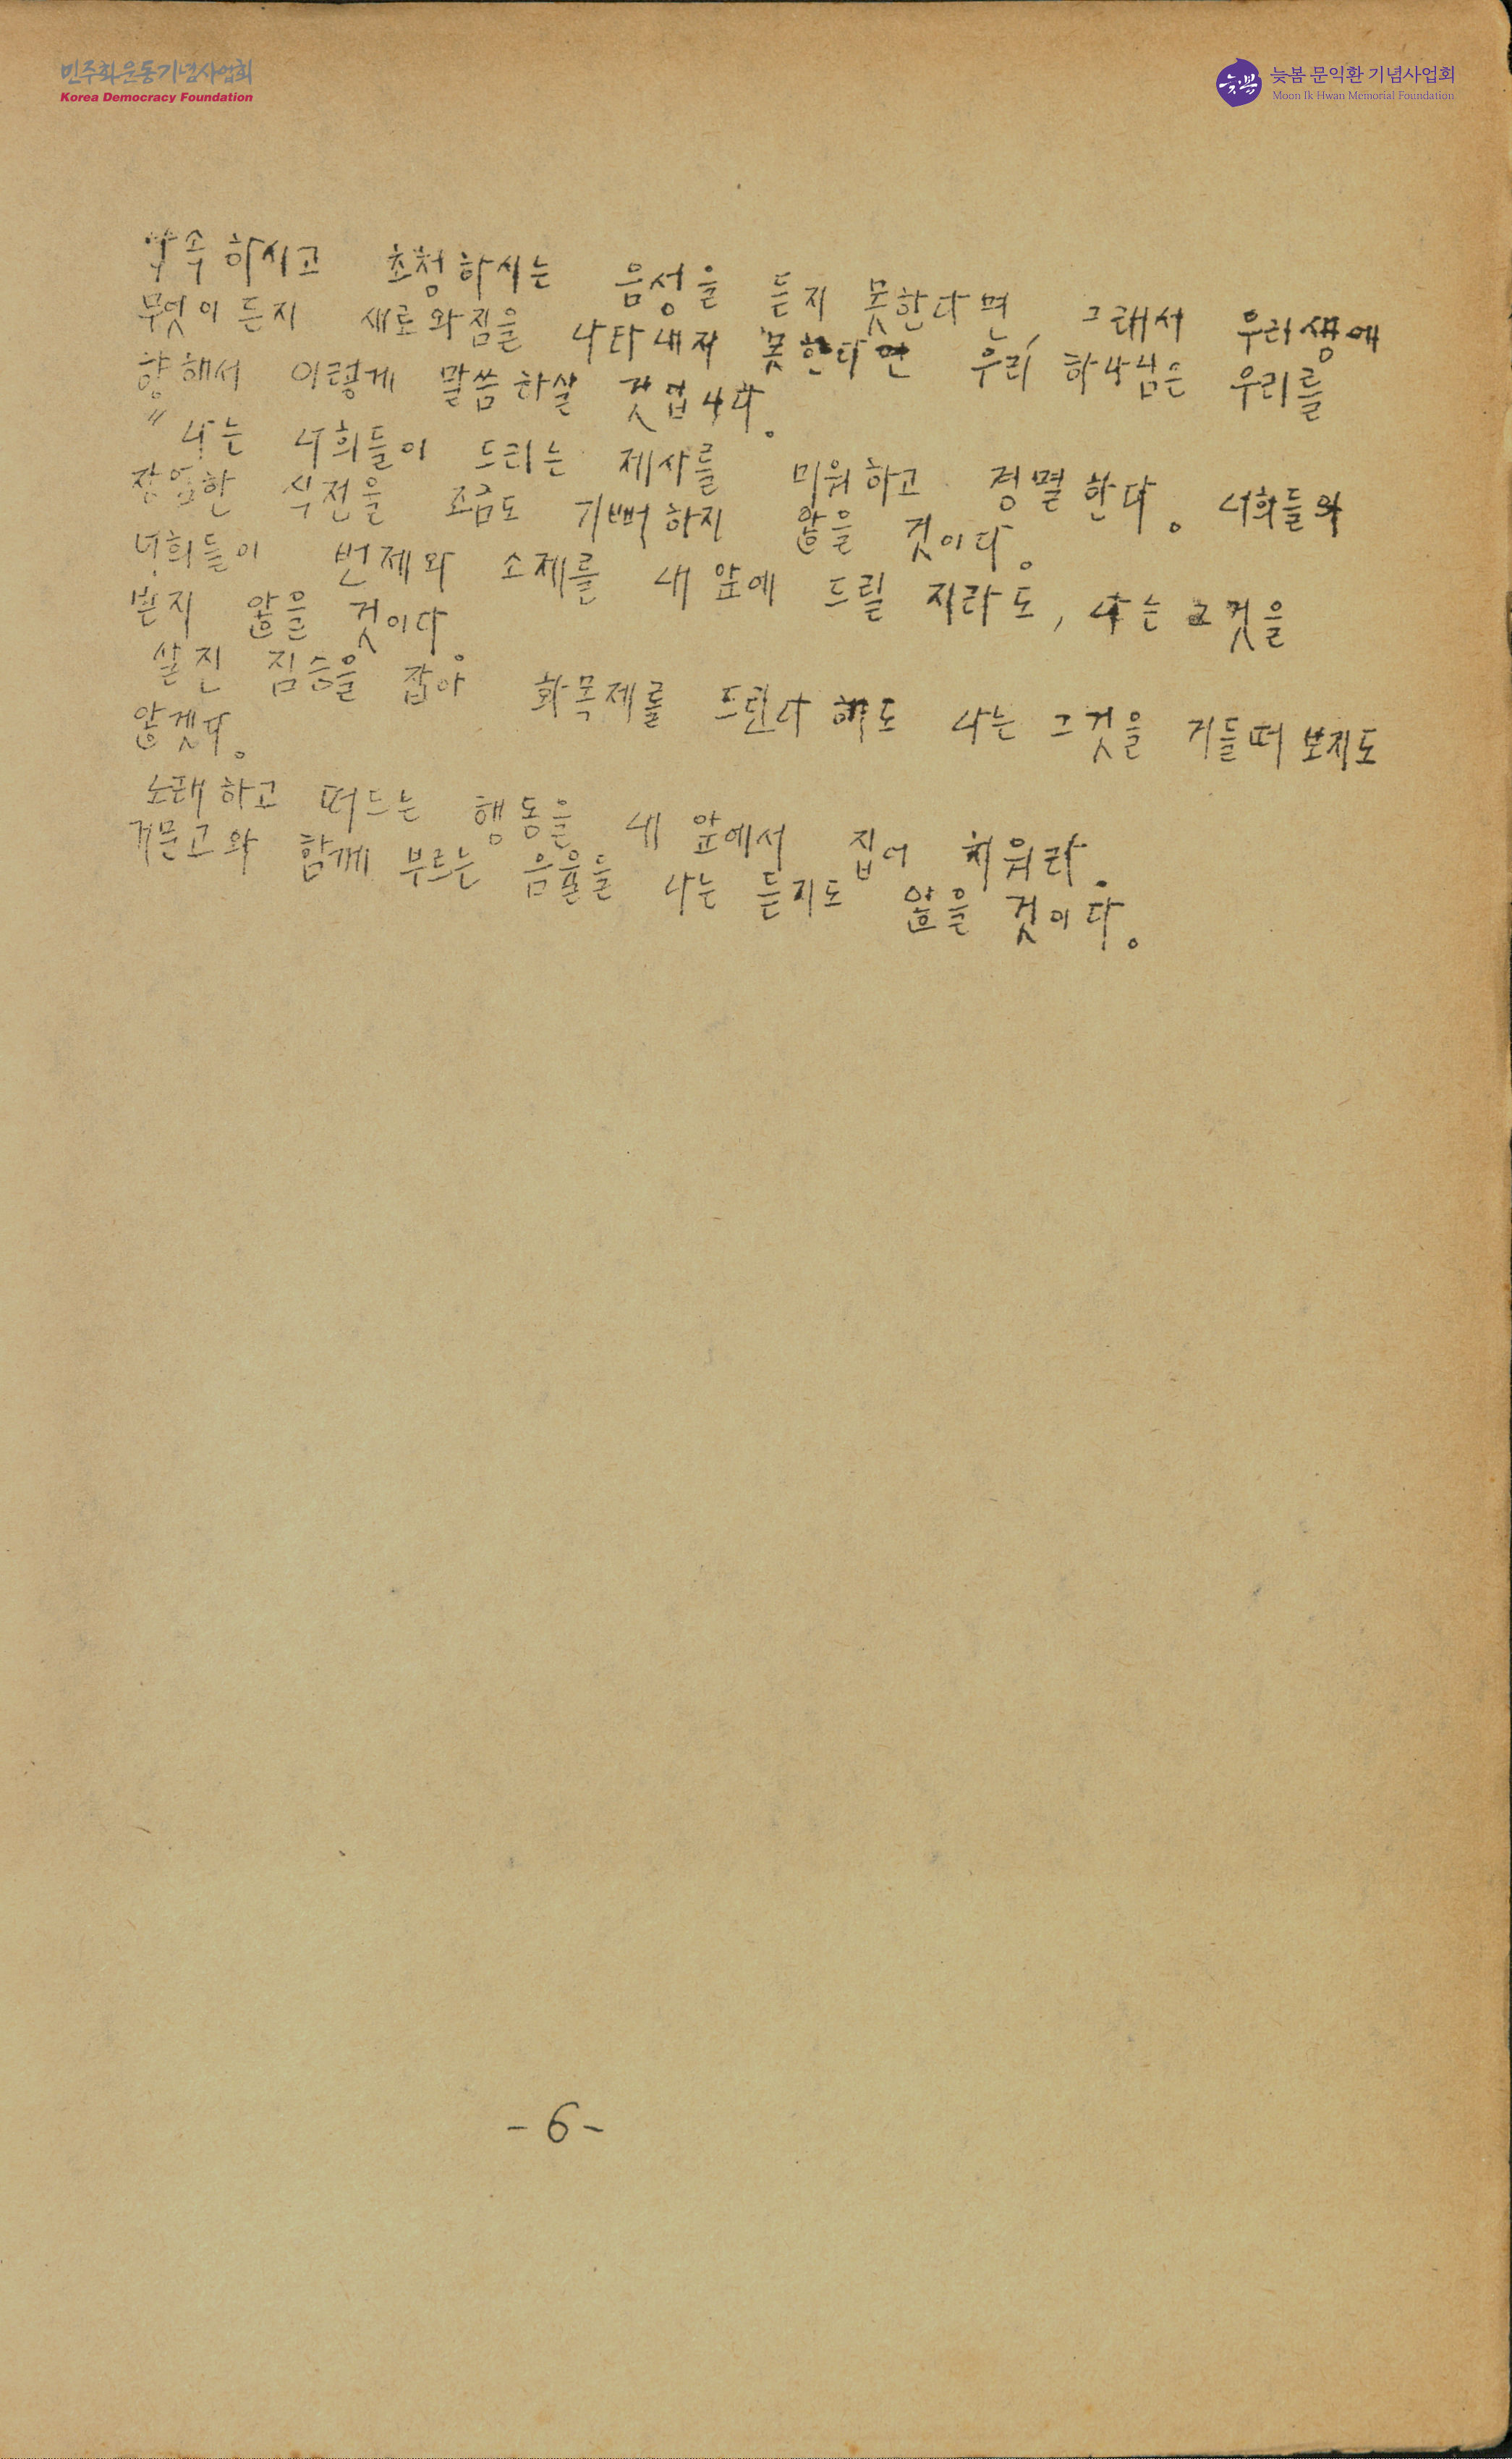 민주화운동기념사업회
Korea Democracy Foundation
늦봄
늦봄 문익환 기념사업회
Moon Ik Hwan Memorial Foundation
약속하시고 초청하시는 음성을 듣지 못한다면, 그래서 우리 생애
무엇이든지 새로와짐을 나타내지 못한다면 우리 하나님은 우리를
향해서 이렇게 말씀하실 것입니다.
"나는 너희들이 드리는 제사를 미워하고 경멸한다. 너희들의
장엄한 식전을 조금도 기뻐하지 않을 것이다.
너희들이 번제와 소제를 내 앞에 드릴지라도, 나는 그것을
받지 않을 것이다.
살진 짐승을 잡아 화목제를 드린다 해도 나는 그것을 거들떠 보지도
않겠다.
노래하고 떠드는 행동을 내 앞에서 집어 치워라.
거문고와 함께 부르는 음율을 나는 듣지도 않을 것이다.
-6-